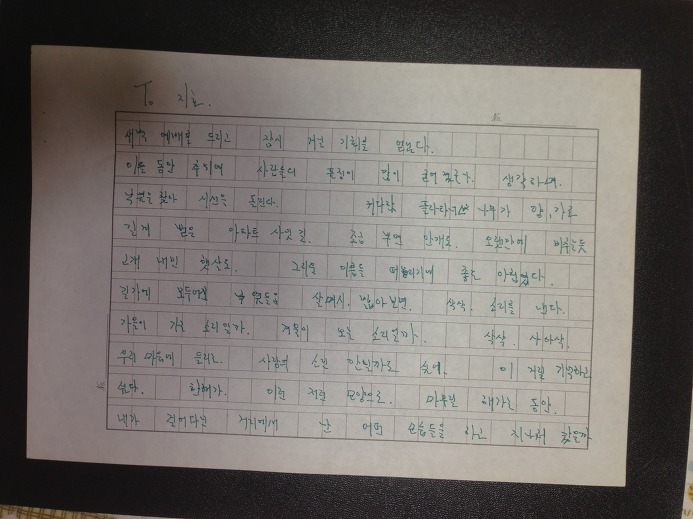 To 지효.
새벽 예배를 드리고 잠시 걷는 기회를 얻는다.
이름 동안 추위에 사람들의 표정이 많이 굳어 생각하며.
낙엽을 찾아 시선을 돌린다. 커다란 플라타너스 나무가 양, 가로
길게 뻗은 아파트 사잇길. 조금 부연 안개로. 오랜만에 비추는듯
고개 내민 햇살로. 그리운 이름을 떠올리기에 좋은 아침이다.
길가에 낙엽들을 살며시. 밟아보면. 삭삭. 소리를 낸다.
가을이 가는 소리일까. 겨울이 오는 소리일까. 삭삭. 사아삭.
우리 마음에 들리는. 사랑의 소린 안될까도 싶네. 이 거리 기억하고
싶다. 한해가. 이런 저런 모양으로. 마무리 돼가는 동안.
내가 걸어다닌 거리에서 난 어떤 모습들을 하고 지나쳐 갔을까